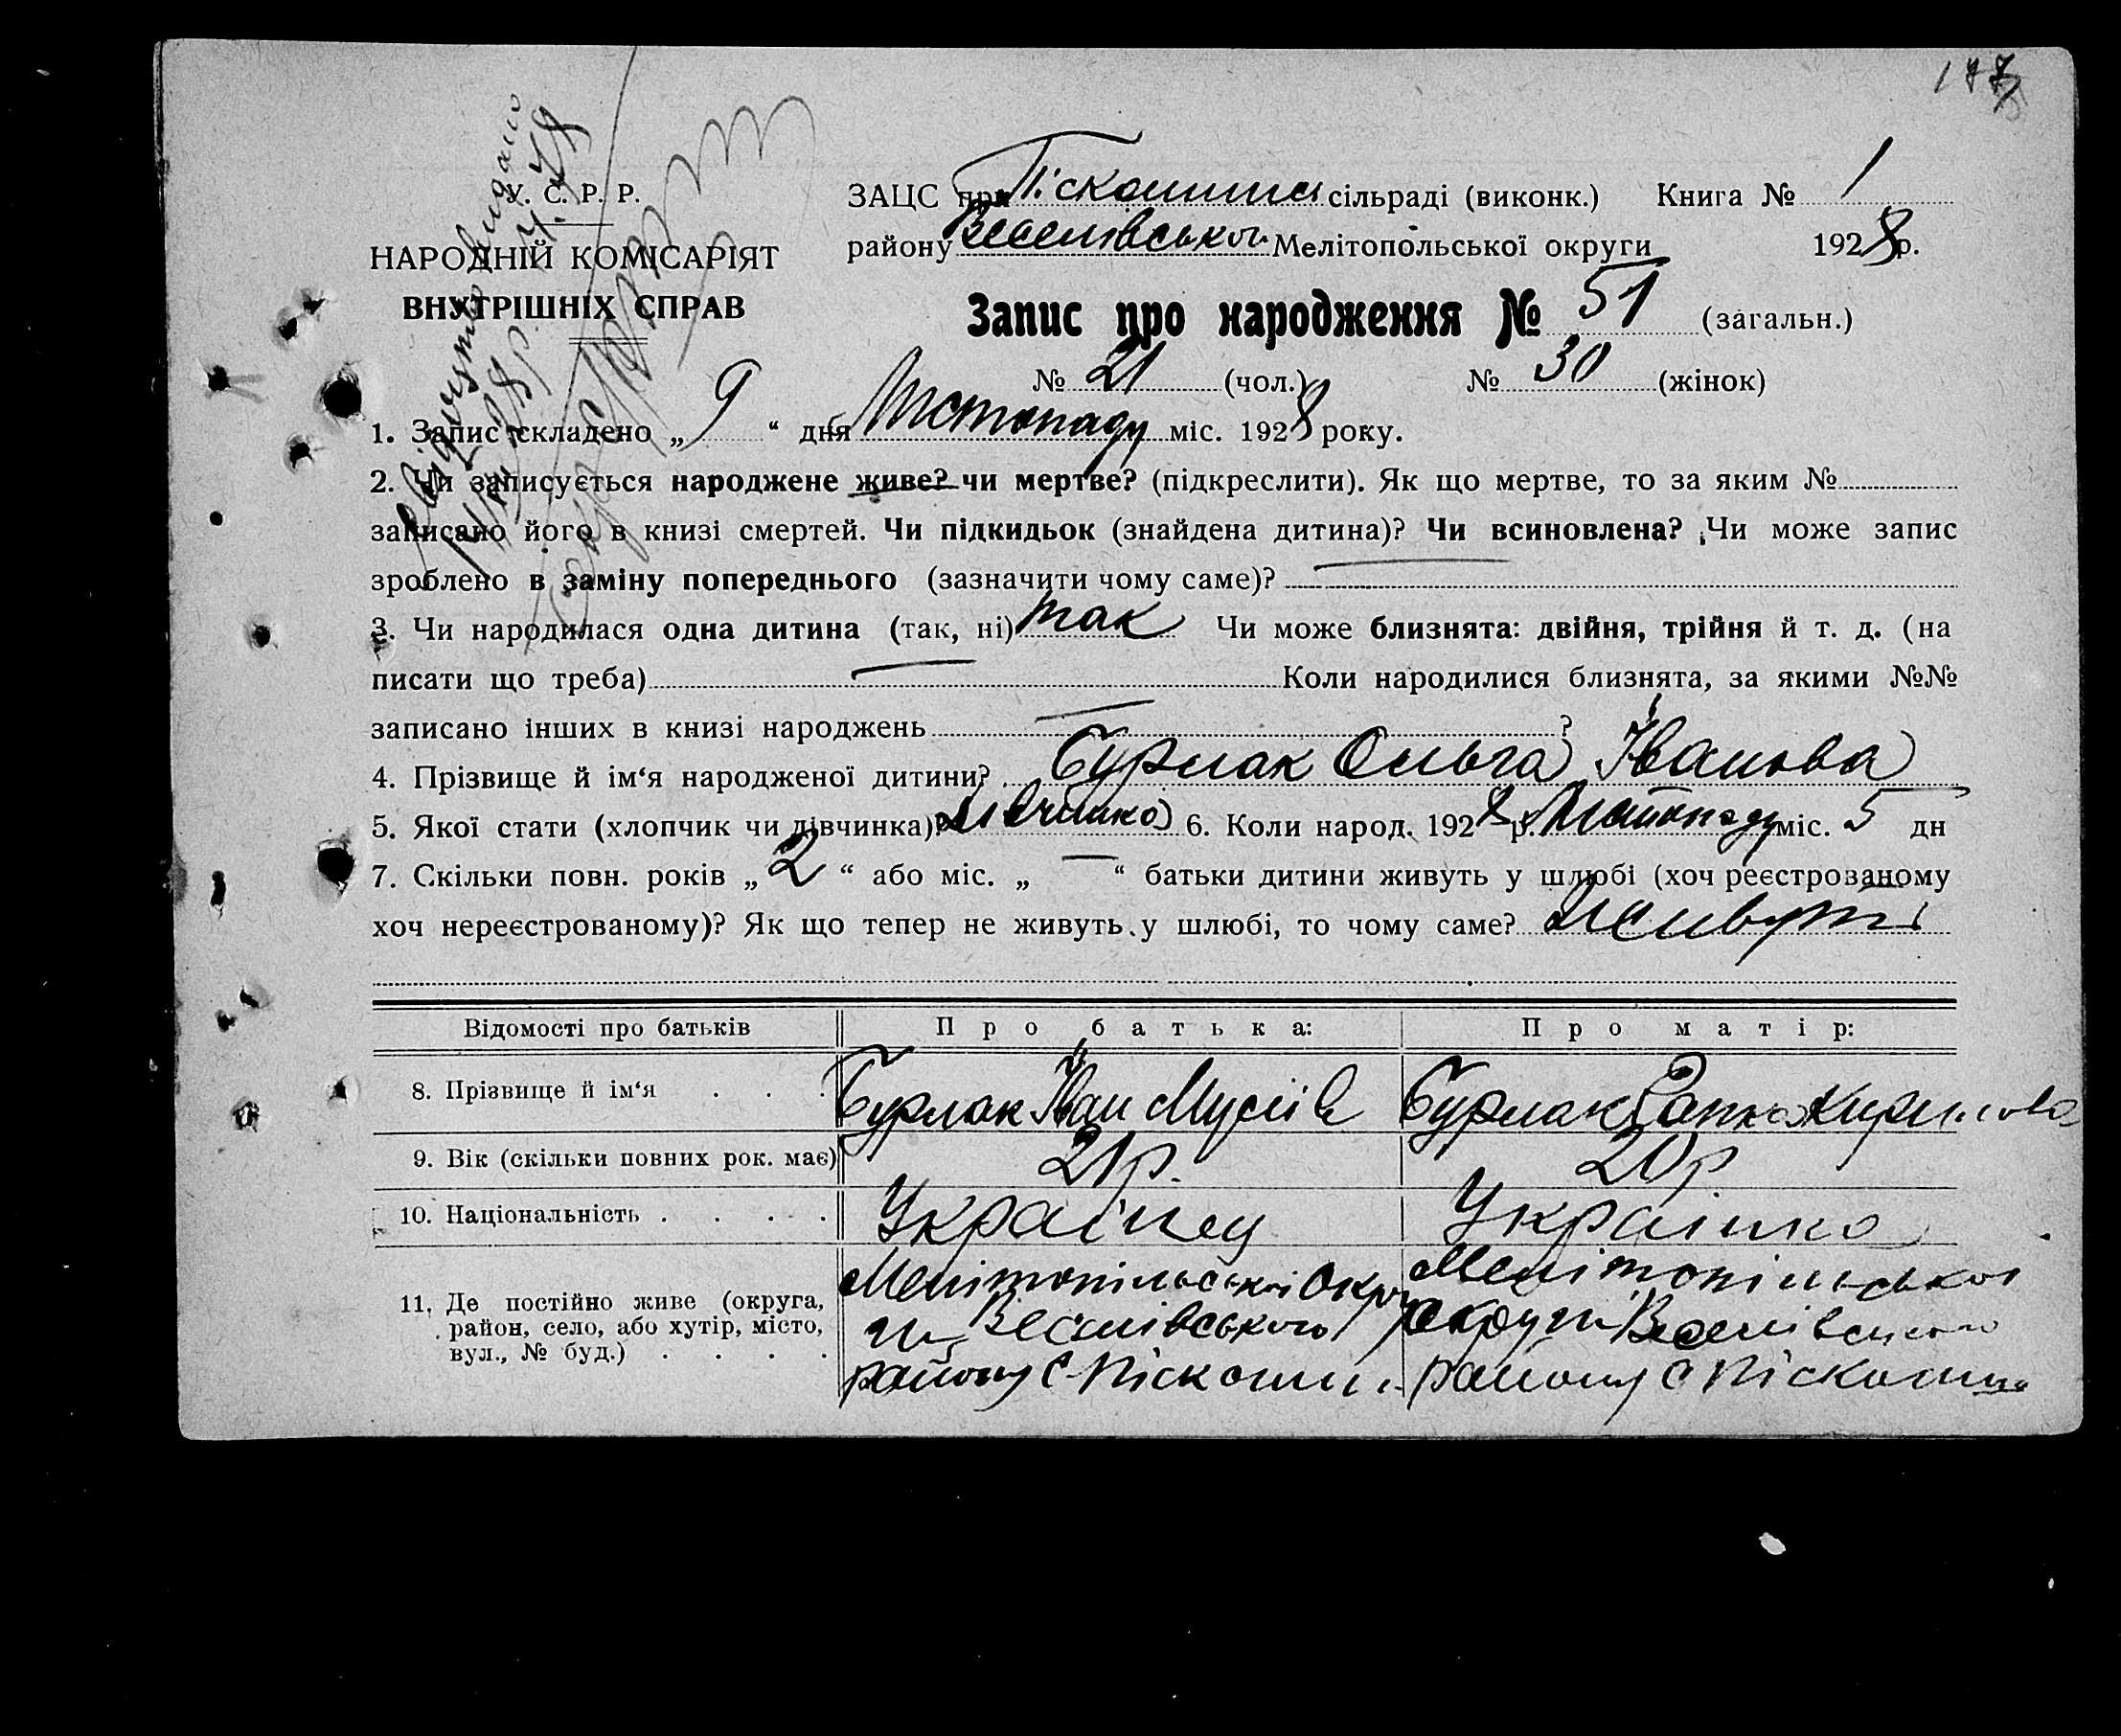 177
У. С. Р. Р.
НАРОДНІЙ КОМІСАРІЯТ
ВНУТРІШНІХ СПРАВ
ЗАЦС при Піскошино сільраді (виконк.) Книга № 1
району Веселівського Мелітопольської округи 1928 р.
Запис про народження № 51 (загальн.)
№ 21 (чол.) № 30 (жінок)
1. Запис складено „ 9 “ дня Листопаду міс. 1928 року.
2. Чи записується народжене живе? чи мертве? (підкреслити). Як що мертве, то за яким №
записано його в книзі смертей. Чи підкидьок (знайдена дитина)? Чи всиновлена? Чи може запис
зроблено в заміну попереднього (зазначити чому саме)? —
3. Чи народилася одна дитина (так, ні) так Чи може близнята: двійня, трійня й т. д. (на
писати що треба) — Коли народилися близнята, за якими №№
записано інших в книзі народжень — ?
4. Прізвище й ім‘я народженої дитини? Бурлак Ольга Іванова
5. Якої стати (хлопчик чи дівчинка)? Дівчинка 6. Коли народ. 1928 р. Листопаду міс. 5 дн
7. Скільки повн. років „ 2 “ або міс. „ — “ батьки дитини живуть у шлюбі (хоч реєстрованому
хоч нереєстрованому)? Як що тепер не живуть у шлюбі, то чому саме?
Відомості про батьків Про батька: Про матір:
8. Прізвище й ім‘я . . . Бурлак Іван Мусіїв Бурлак Ганка Кирилова
9. Вік (скільки повних рок. має) 21 р. 20 р.
10. Національність . . . . Українец Українка
11. Де постійно живе (округа, район, село, або хутір, місто, вул., № буд.) . . . .
Мелітопільської Окру
ги Веселівського
району с. Піскоши
Мелітопільської
округи Веселівського
району с Піскошино
Свідоцтво видано